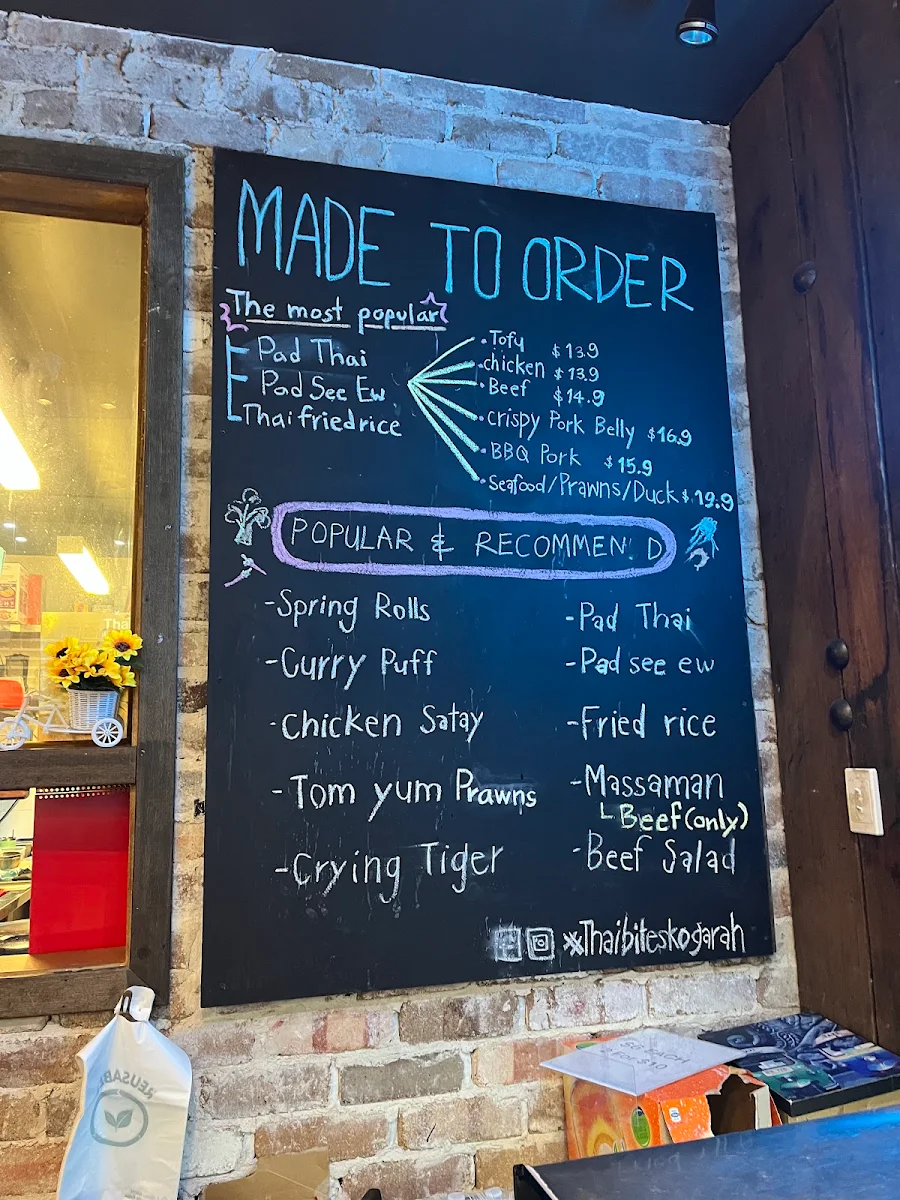 MADE TO ORDER
The most popular
Pad Thai
Pad See Ew
Thai fried rice
.Tofu $13.9
.chicken $13.9
.Beef $14.9
.crispy Pork Belly $16.9
.BBQ Pork $15.9
.Seafood/Prawns/Duck $19.9
POPULAR & RECOMMEN D
-Spring Rolls
-Curry Puff
-Chicken Satay
-Tom yum Prawns
-Crying Tiger
-Pad Thai
-Pad see ew
-Fried rice
-Massaman
Beef (only)
-Beef Salad
Thaibiteskogarah
REUSABL
Tha